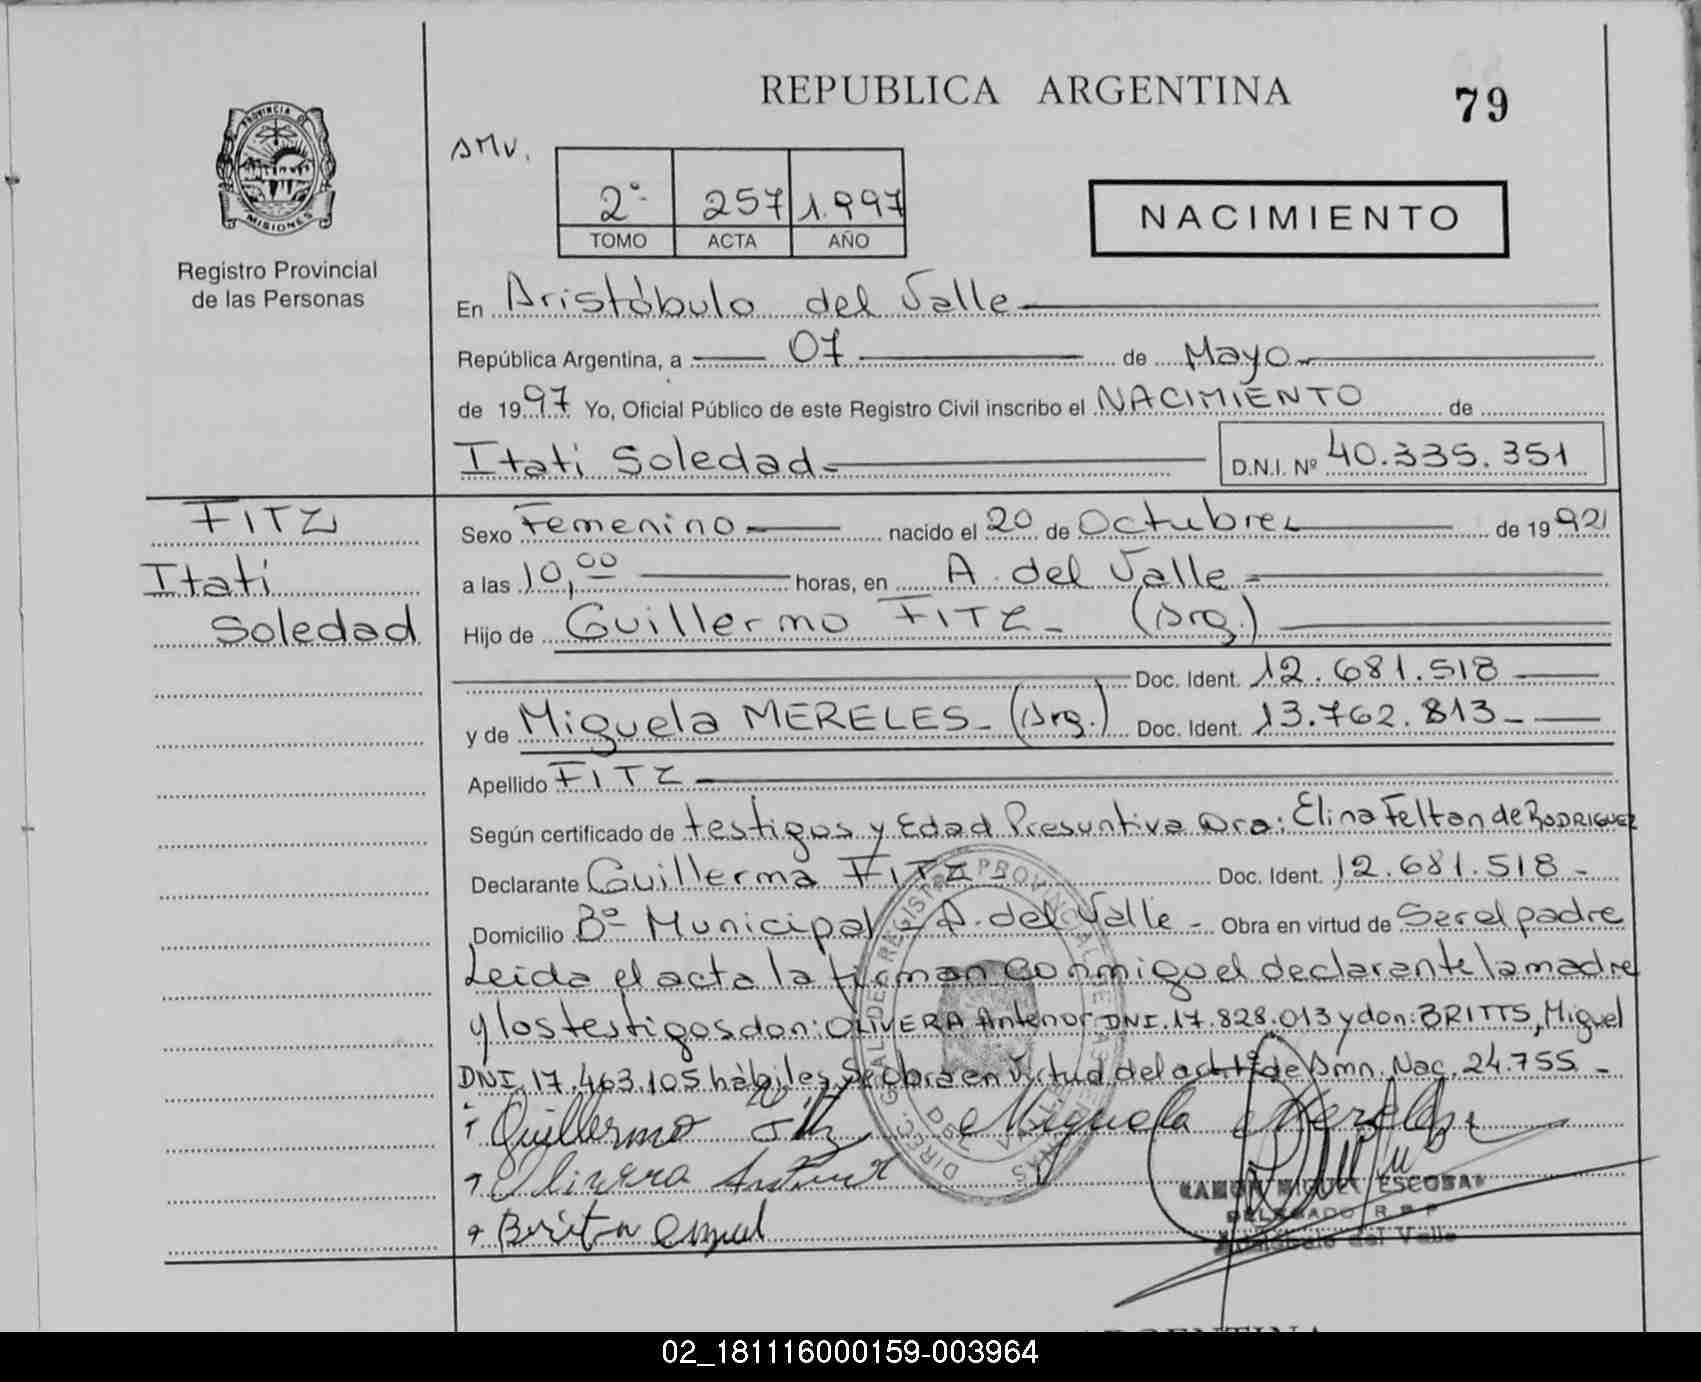 REPUBLICA ARGENTINA
79
PROVINCIA DE
MISIONES
Registro Provincial
de las Personas
SMV.
2º 257 1.997
TOMO ACTA AÑO
NACIMIENTO
En Aristóbulo del Valle
República Argentina, a 07 de Mayo
de 1997 Yo, Oficial Público de este Registro Civil inscribo el NACIMIENTO de
Itati Soledad D.N.I. Nº 40.335.351
FITZ
Itati
Soledad
Sexo Femenino nacido el 20 de Octubre de 1992
a las 10,00 horas, en A. del Valle
Hijo de Guillermo FITZ - (Arg.)
Doc. Ident. 12.681.518
y de Miguela MERELES - (Arg.) Doc. Ident. 13.762.813 -
Apellido FITZ
Según certificado de testigos y Edad Presuntiva Dra: Elina Feltan de RODRIGUEZ
Declarante Guillermo FITZ - Doc. Ident. 12.681.518 -
Domicilio Bº Municipal - A. del Valle - Obra en virtud de Ser el padre
Leida el acta la firman conmigo el declarante la madre
y los testigos don: OLIVERA Antenor DNI. 17.828.013 y don: BRITTS, Miguel
DNI. 17.463.105 hábiles Se obra en virtud del art 1º de Amn. Nac. 24.755 -
Guillermo Fitz Miguela Mereles
Olivera Antenor
RAMON MIGUEL ESCOBAR
DELEGADO R.P.P
Aristóbulo del Valle
ARGENTINA
02_181116000159-003964